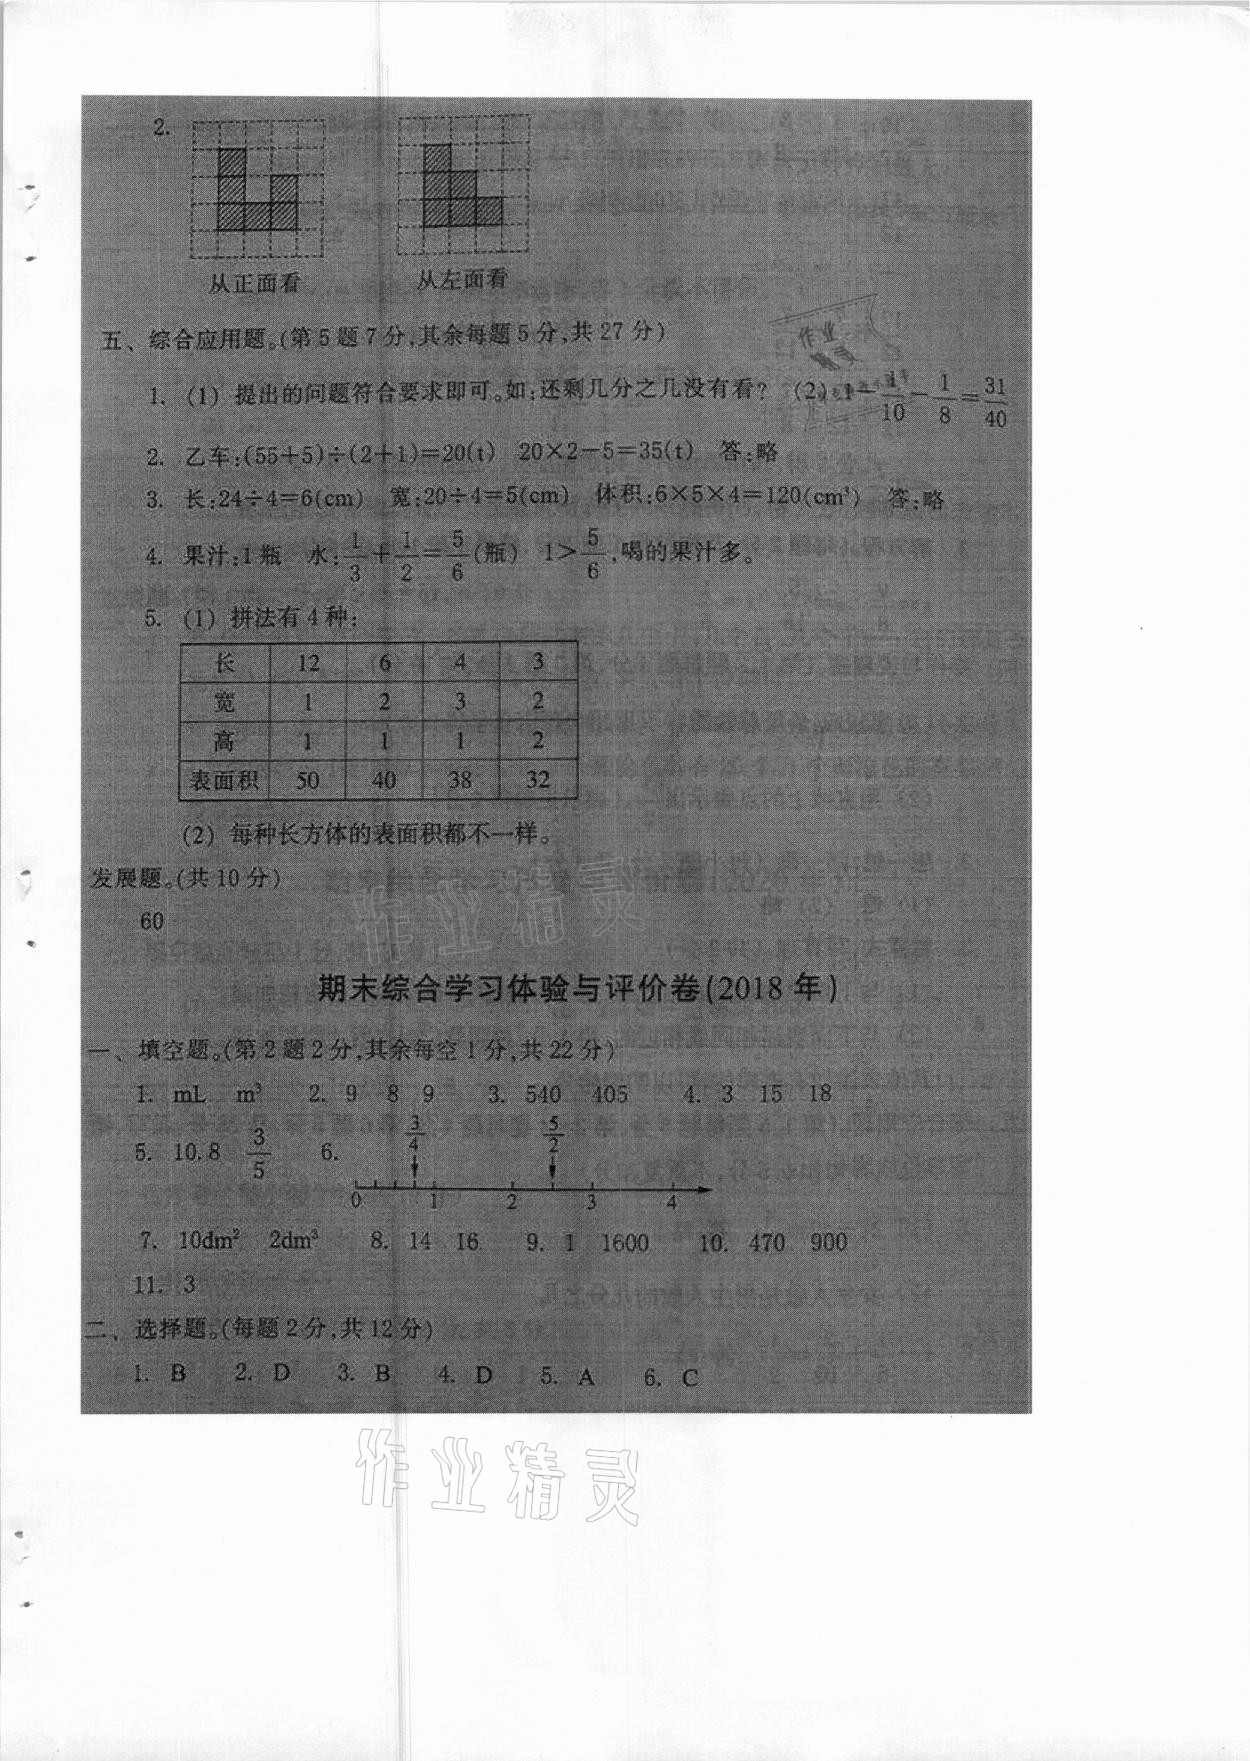 2.
从正面看 从左面看
五、综合应用题。(第5题7分,其余每题5分,共27分)
1. (1) 提出的问题符合要求即可。如:还剩几分之几没有看? (2) 1-1/10-1/8=31/40
2. 乙车:(55+5)÷(2+1)=20(t) 20×2-5=35(t) 答:略
3. 长:24÷4=6(cm) 宽:20÷4=5(cm) 体积:6×5×4=120(cm³) 答:略
4. 果汁:1瓶 水:1/3+1/2=5/6(瓶) 1>5/6,喝的果汁多。
5. (1) 拼法有4种:
长 12 6 4 3
宽 1 2 3 2
高 1 1 1 2
表面积 50 40 38 32
(2) 每种长方体的表面积都不一样。
发展题。(共10分)
60
作业精灵
期末综合学习体验与评价卷(2018年)
一、填空题。(第2题2分,其余每空1分,共22分)
1. mL m³ 2. 9 8 9 3. 540 405 4. 3 15 18
5. 10.8 3/5 6. 3/4 5/2
0 1 2 3 4
7. 10dm² 2dm³ 8. 14 16 9. 1 1600 10. 470 900
11. 3
二、选择题。(每题2分,共12分)
1. B 2. D 3. B 4. D 5. A 6. C
作业精灵